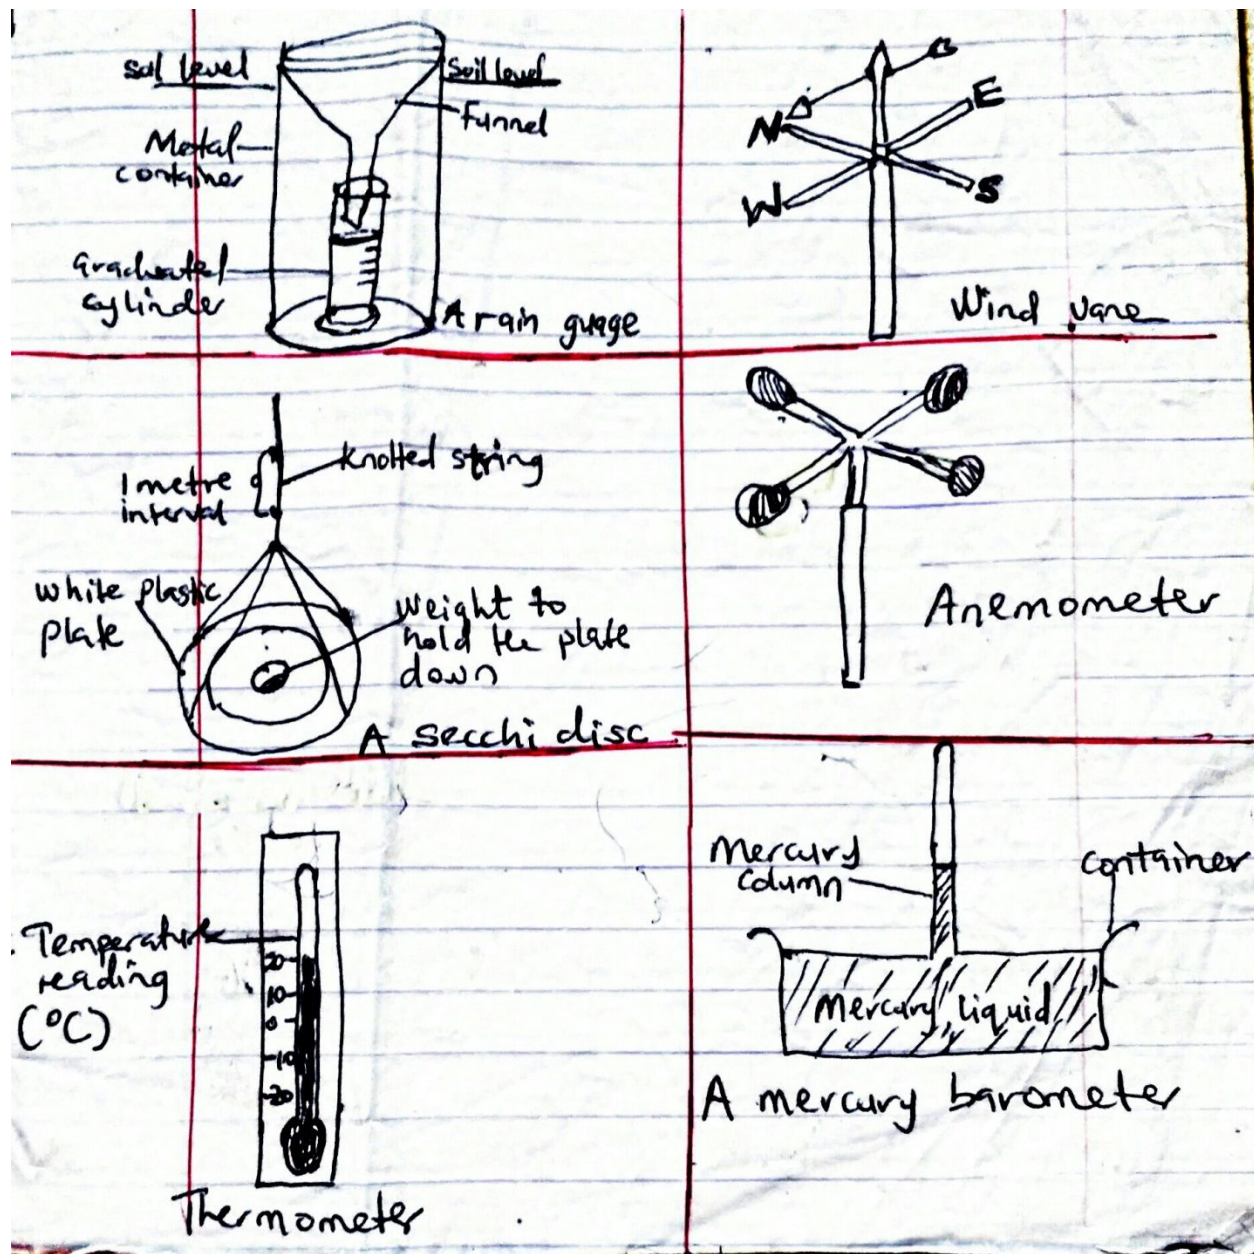 Soil level
Soil level
Funnel
Metal
container
Graduated
cylinder
A rain guage
N
E
W
S
Wind vane
Knotted string
1 metre
interval
White plastic
plate
Weight to
hold the plate
down
A secchi disc
Anemometer
Temperature
reading
(°C)
20
10
0
-10
-20
Thermometer
Mercury
column
container
Mercury liquid
A mercury barometer